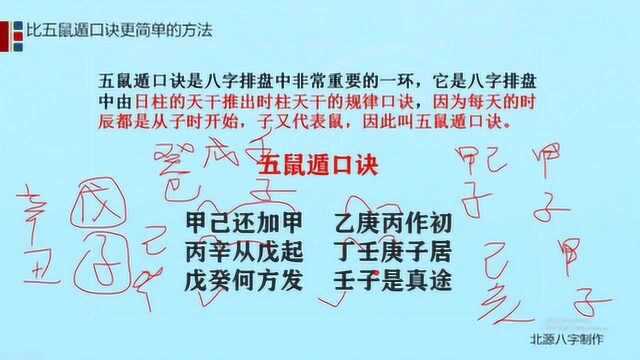 比五鼠遁口诀更简单的方法
五鼠遁口诀是八字排盘中非常重要的一环，它是八字排盘
中由日柱的天干推出时柱天干的规律口诀，因为每天的时
辰都是从子时开始，子又代表鼠，因此叫五鼠遁口诀。
癸 戊 壬
巳 子
五鼠遁口诀
甲己 甲
子 子
辛 戊
丑 子
己
甲己还加甲 乙庚丙作初
丙辛从戊起 丁壬庚子居
戊癸何方发 壬子是真途
己 甲
亥 子
北源八字制作